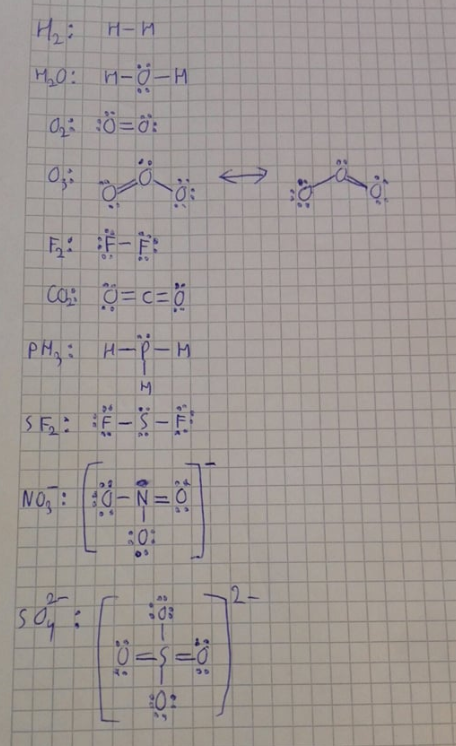 H₂: H–H
H₂O: H–Ö–H
O₂: :Ö=Ö:
O₃: O=O–O ↔ O–O=O
F₂: F–F
CO₂: O=C=O
PH₃: H–P–H
H
SF₂: F–S–F
NO₃⁻: [O–N=O]⁻
O
O
SO₄²⁻: [O=S=O]²⁻
O